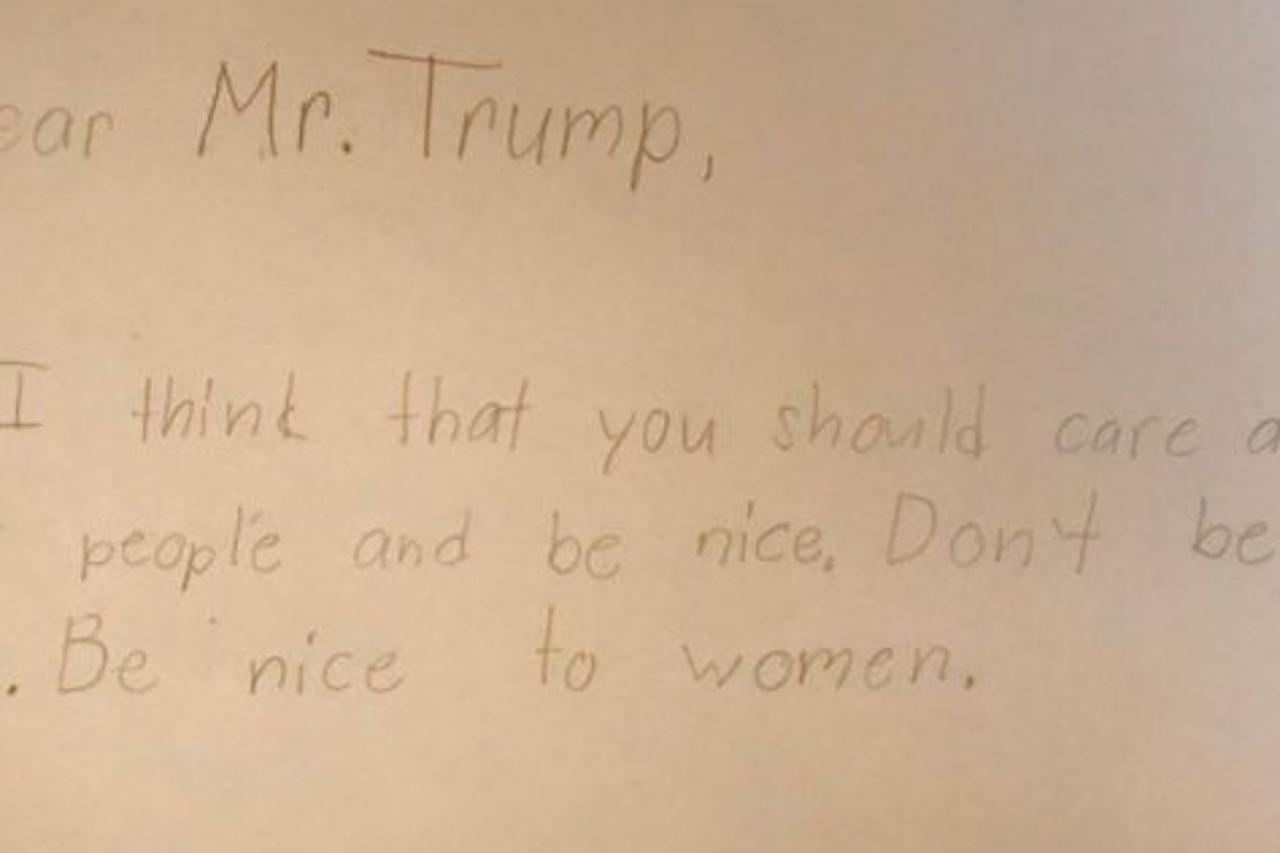 ear Mr. Trump,
I think that you should care a
people and be nice. Don't be
. Be nice to women.